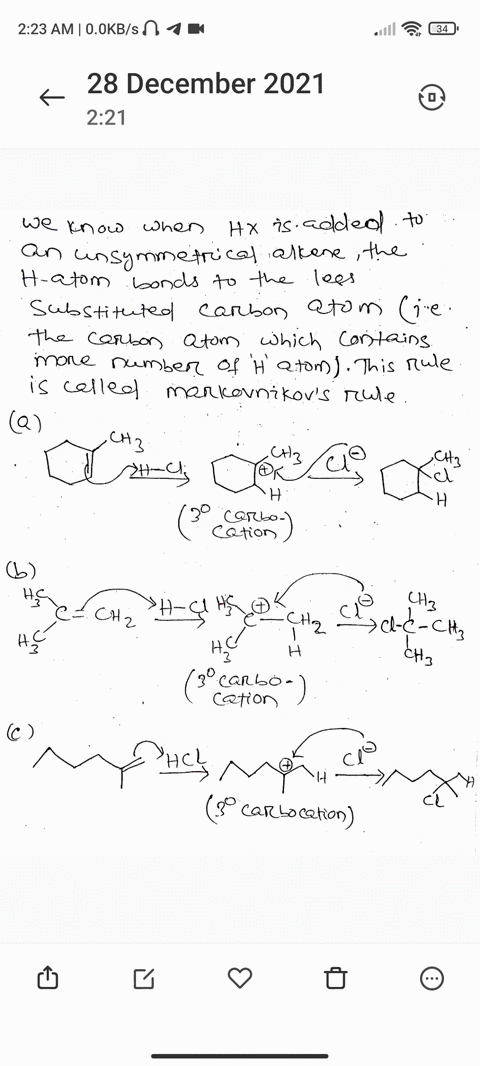 2:23 AM | 0.0KB/s
34
28 December 2021
2:21
we know when HX is added to
an unsymmetrical alkene, the
H-atom bonds to the less
substituted carbon atom (i.e.
the carbon atom which contains
more number of 'H' atom). This rule
is called markovnikov's rule.
(a)
CH3 H-Cl CH3 ⊕ H Cl⊖ CH3 Cl H
(3° carbo-
cation)
(b)
H3C H3C C=CH2 H-Cl H3C H3C C⊕-CH2 H Cl⊖ Cl-C-CH3 CH3 CH3
(3° carbo-
cation)
(c)
HCL ⊕ H Cl⊖ Cl H
(3° carbocation)